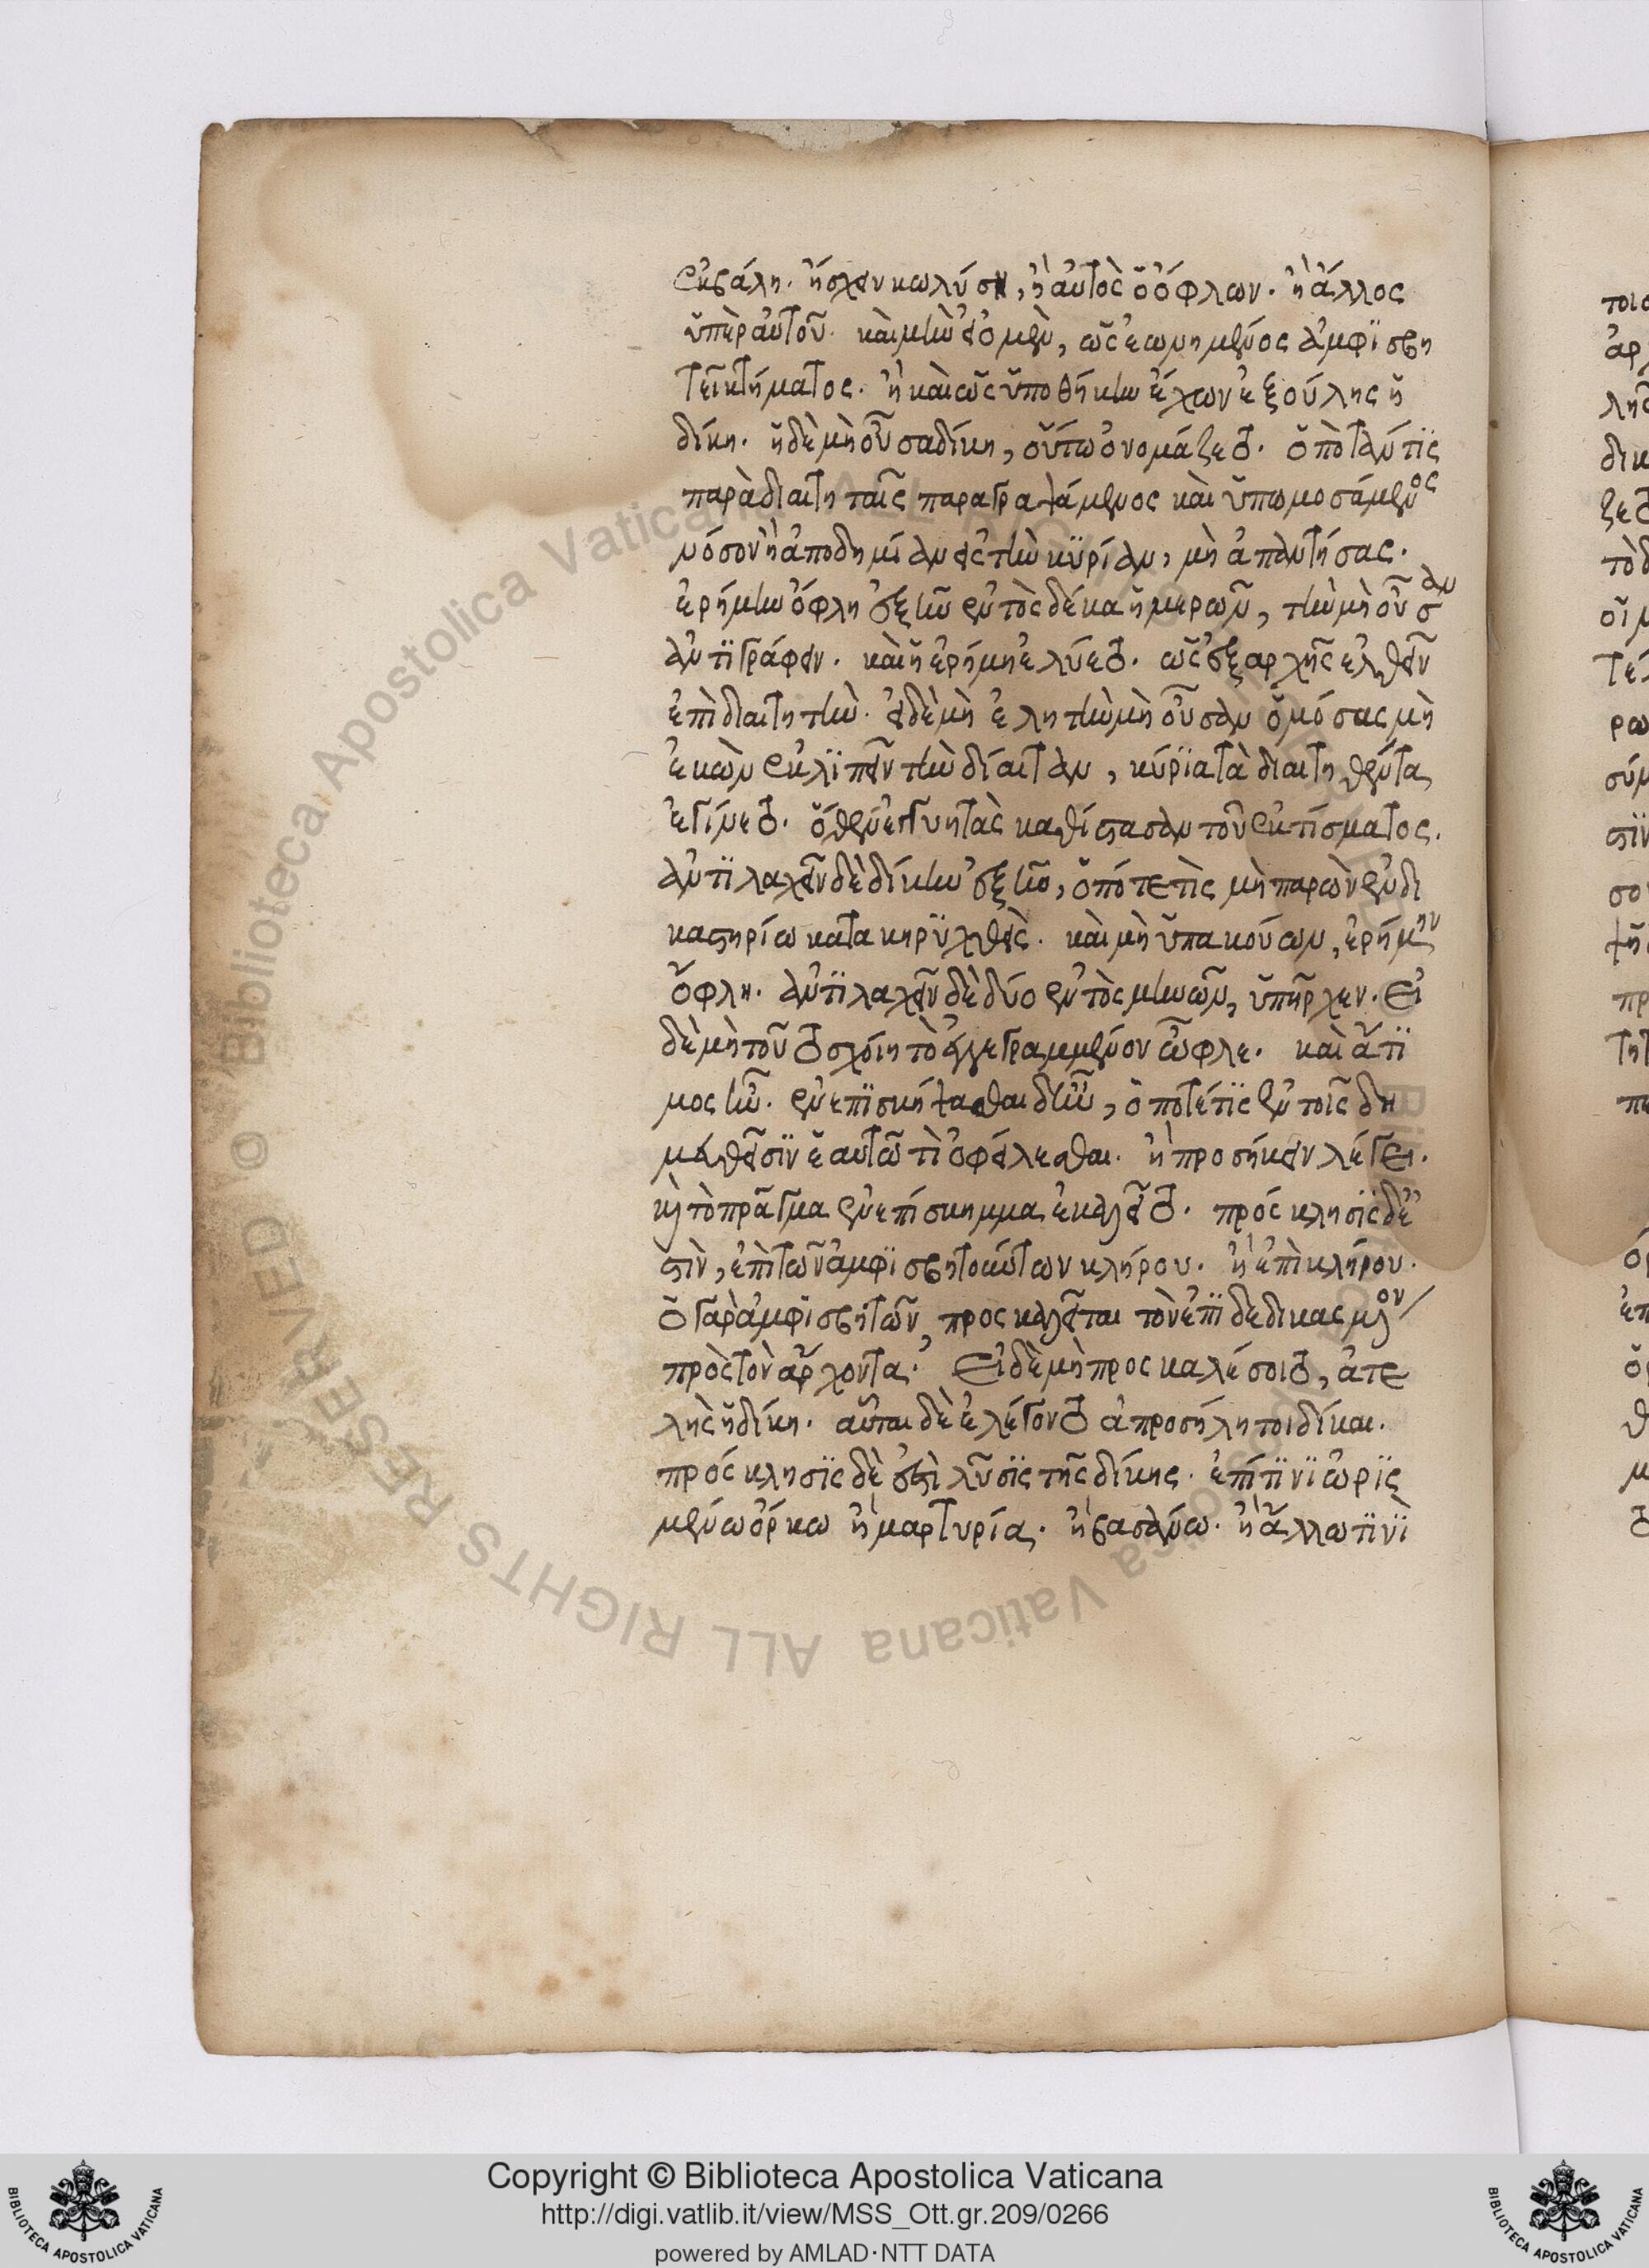 ἐκβάλη. ἢ σχεῖν κωλύση, ἢ αὐτὸς ὁ ὄφλων. ἢ ἄλλος
ὑπὲρ αὐτοῦ. καὶ μὴν εἰ ὁ μὲν, ὡς ἐωνημένος ἀμφϊσβη
τεῖ κτήματος. ἢ καὶ ὡς ὑποθήκην ἔχων ἐξούλης ἡ
δίκη. ἡ δὲ μὴ οὖσα δίκη, οὕτω ὀνομάζεται. ὁπόταν τίς
παρὰ διαιτηταῖς παραγραψάμενος καὶ ὑπωμοσάμενος
νόσον ἢ ἀποδημίαν εἰς τὴν κϋρίαν, μὴ ἀπαντήσας.
ἐρήμην ὄφλη ἐξῆν ἐντὸς δέκα ἡμερῶν, τὴν μὴ οὖσαν
ἀντϊγράφειν. καὶ ἡ ἐρήμη ἐλύεται. ὡς ἐξαρχῆς ἐλθεῖν
ἐπὶ διαιτητὴν. εἰ δὲ μὴ ἕλη τὴν μὴ οὖσαν ὀμόσας μὴ
ἑκὼν ἐκλϊπεῖν τὴν δίαιταν, κύρϊα τὰ διαιτηθέντα
ἐγίνεται. ὅθεν ἐγγυητὰς καθίστασαν τοῦ ἐκτίσματος.
ἀντϊλαχεῖν δὲ δίκην ἐξῆν, ὁπότε τὶς μὴ παρὼν ἐν δι
καστηρίω κατακηρϋχθεὶς. καὶ μὴ ὑπακούων, ἐρήμην
ὄφλη. ἀντϊλαχεῖν δὲ δύο ἐντὸς μηνῶν, ὑπῆρχεν. Εἰ
δὲ μὴ τοῦται σχόιη τὸ ἐγγεγραμμένον ὦφλε. καὶ ἄτϊ
μος ἦν. ἐνεπϊσκήψασθαι δ' ἦν, ὁπότέ τϊς ἐν τοῖς δη
μευθεῖσϊν ἑαυτῶ τὶ ὀφείλεσθαι. ἢ προσήκειν λέγει.
καὶ τὸ πρᾶγμα ἐνεπίσκημμα ἐκαλεῖται. πρόσκλησϊς δέ
ἐστὶν, ἐπὶ τῶν ἀμφϊσβητούντων κλήρου. ἢ ἐπὶ κλήρου.
ὁ γὰρ ἀμφϊσβητῶν προσκαλεῖται τὸν ἐπϊδεδικασμένον
πρὸς τὸν ἄρχοντα. Εἰ δὲ μὴ προσκαλέσοιται, ἀτε
λὴς ἡ δίκη. αὗται δὲ ἐλέγονται ἀπροσήλητοι δίκαι.
πρόσκλησϊς δὲ ἐστὶ λῦσϊς τῆς δίκης. ἐπί τϊνϊ ὡρϊς
μένω ὅρκω ἢ μαρτυρία. ἢ βασάνω. ἢ ἄλλω τϊνϊ
Copyright © Biblioteca Apostolica Vaticana
http://digi.vatlib.it/view/MSS_Ott.gr.209/0266
powered by AMLAD·NTT DATA